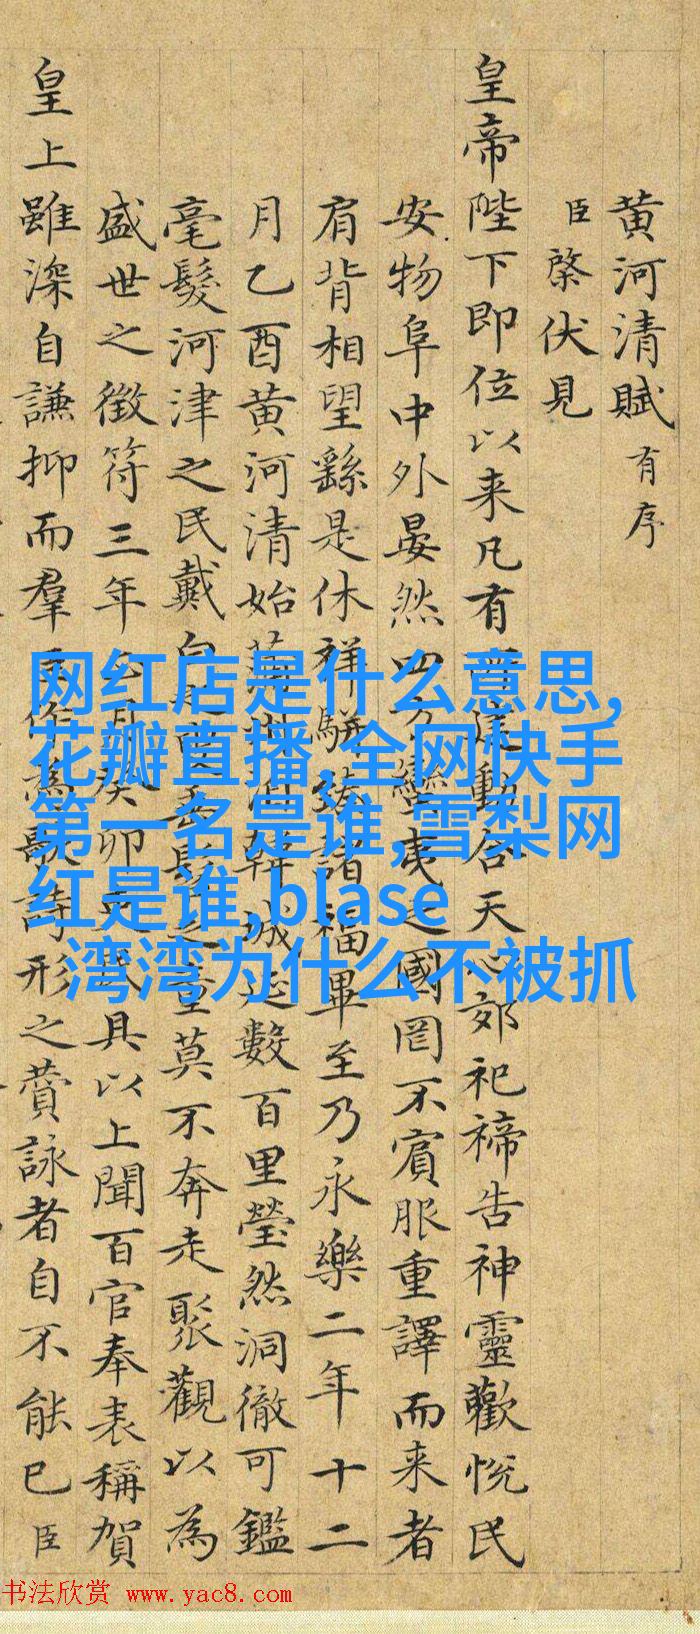 黄河清賦 有序
臣棨伏見
皇帝陛下即位以来凡有動合天心郊祀禘告神靈歡悅民
安物阜中外晏然四方蠻夷之國罔不賓服重譯而来者
肩背相望繇是休祥駢臻諸福畢至乃永樂二年十二
月乙酉黄河清始蒲州韓城延數百里瑩然洞徹可鑑
毫髮河津之民戴白童莫不奔走聚觀以為
盛世之徵符三年正月癸卯具以上聞百官奉表稱賀
皇上雖深自謙抑而羣作為歌詩形之賛詠者自不能已臣
网红店是什么意思,
花瓣直播,全网快手
第一名是谁,雪梨网
红是谁,blase
湾湾为什么不被抓
书法欣赏 www.yac8.com